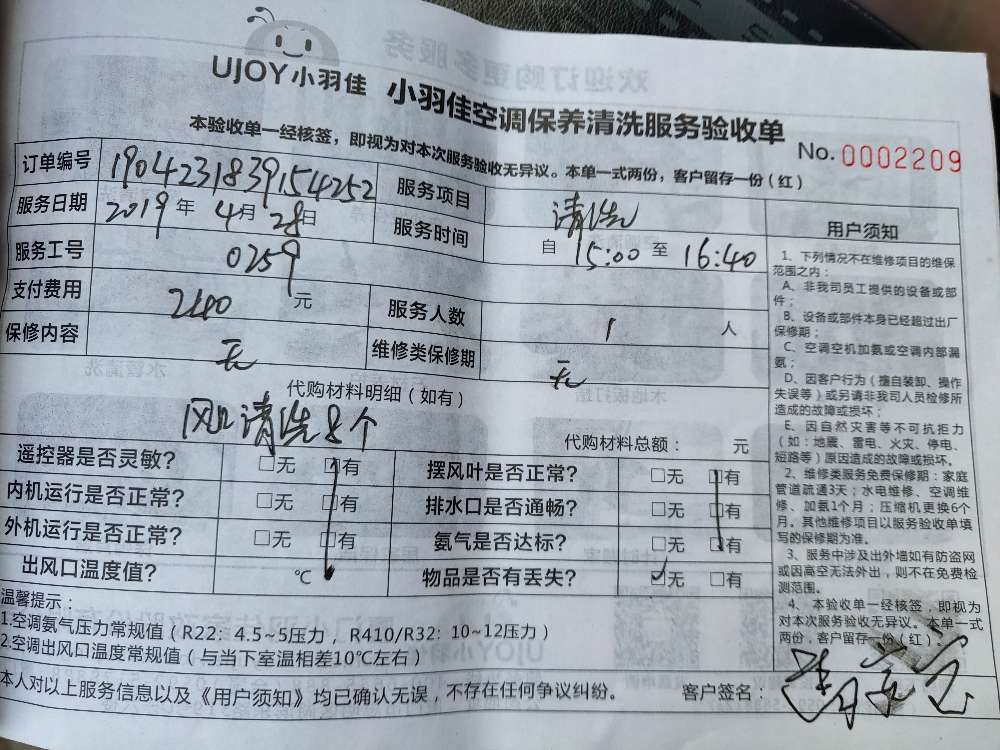 UJOY小羽佳 小羽佳空调保养清洗服务验收单
本验收单一经核签，即视为对本次服务验收无异议。本单一式两份，客户留存一份（红）
No. 0002209
订单编号 1904231839154252 服务项目 清洗
服务日期 2019 年 4 月 28 日 服务时间 自 15:00 至 16:40
服务工号 0259
支付费用 元 服务人数 1 人
保修内容 无 维修类保修期 无
代购材料明细（如有）
风口清洗8个
代购材料总额： 元
遥控器是否灵敏？ □无 □有 摆风叶是否正常？ □无 □有
内机运行是否正常？ □无 □有 排水口是否通畅？ □无 □有
外机运行是否正常？ □无 □有 氨气是否达标？ □无 □有
出风口温度值？ ℃ 物品是否有丢失？ ☑无 □有
温馨提示：
1.空调氨气压力常规值（R22：4.5~5压力，R410/R32：10~12压力）
2.空调出风口温度常规值（与当下室温相差10℃左右）
本人对以上服务信息以及《用户须知》均已确认无误，不存在任何争议纠纷。 客户签名：
用户须知
1、下列情况不在维修项目的维保
范围之内：
A、非我司员工提供的设备或部
件；
B、设备或部件本身已经超过出厂
保修期；
C、空调空机加氨或空调内部漏
氨；
D、因客户行为（擅自装卸、操作
失误等）或另请非我司人员检修所
造成的故障或损坏；
E、因自然灾害等不可抗拒力
（如：地震、雷电、火灾、停电、
短路等）原因造成的故障或损坏。
2、维修类服务免费保修期：家庭
管道疏通3天；水电维修、空调维
修、加氨1个月；压缩机更换6个
月。其他维修项目以服务验收单填
写的保修期为准。
3、服务中涉及出外墙如有防盗网
或因高空无法外出，则不在免费检
测范围。
4、本验收单一经核签，即视为
对本次服务验收无异议。本单一式
两份，客户留存一份（红）